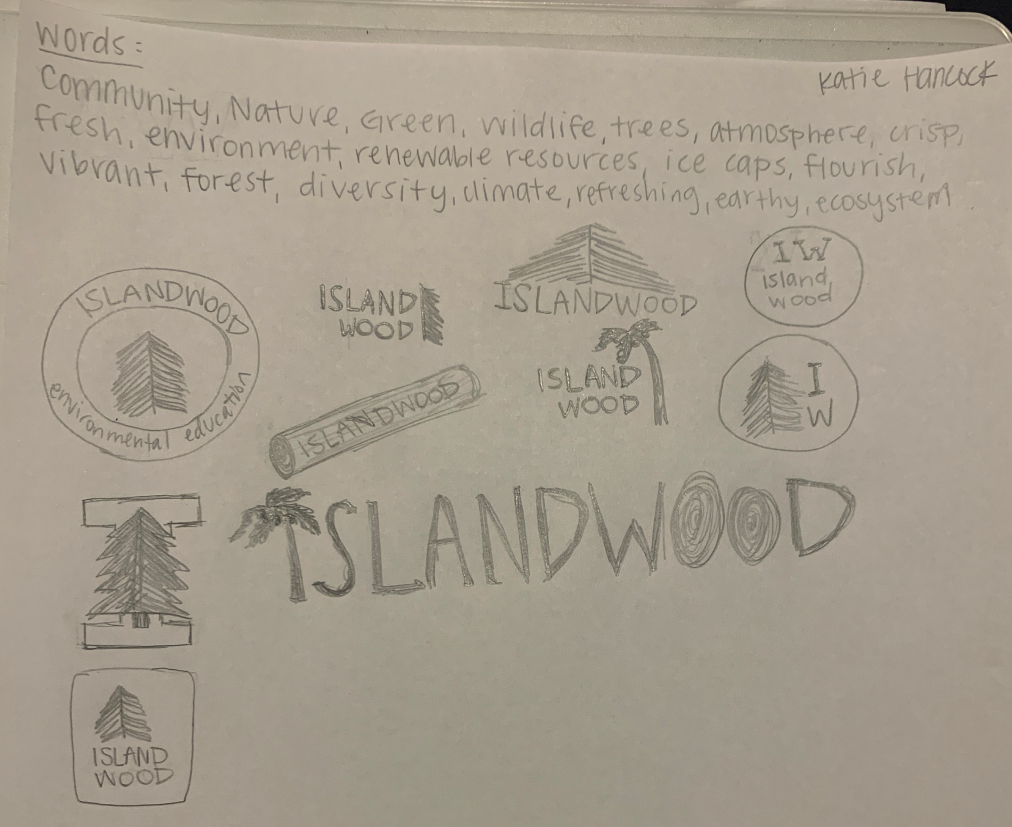 Words:
Katie Hancock
Community, Nature, Green, wildlife, trees, atmosphere, crisp,
fresh, environment, renewable resources, ice caps, flourish,
vibrant, forest, diversity, climate, refreshing, earthy, ecosystem.
ISLANDWOOD
environmental education
ISLAND
WOOD
ISLANDWOOD
IW
island
wood
ISLANDWOOD
ISLAND
WOOD
I
W
ISLANDWOOD
I
ISLAND
WOOD